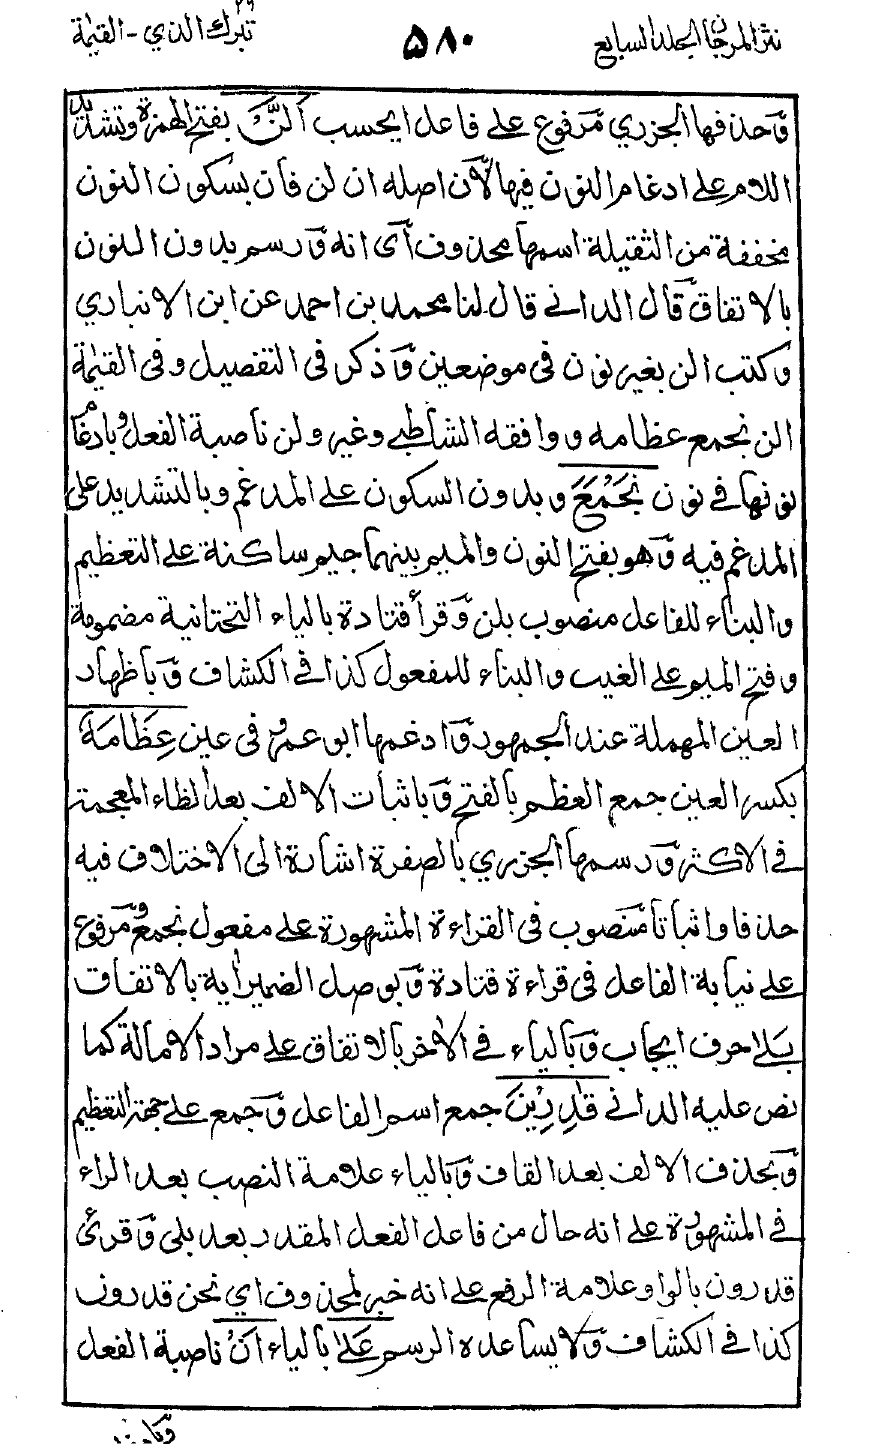 نثر المرجان المجلد السابع ٥٨٠ تبرك الذي ٢٩ - القيمة
وحذفها الجزري مرفوع على فاعل ايحسب اَلَّنْ بفتح الهمزة وتشديد
اللام على ادغام النون فيها لان اصله ان لن فان بسكون النون
مخففة من الثقيلة اسمها محذوف اى انه ورسم بدون النون
بالاتفاق قال الدانى قال لنا محمد بن احمد عن ابن الانباري
وكتب الن بغير نون فى موضعين وذكر فى التفصيل وفى القيمة
الن نجمع عظامه ووافقه الشاطبى وغيره ولن ناصبة الفعل وبادغام
نونها فى نون نَجْمَعَ وبدون السكون على المدغم وبالتشديد على
المدغم فيه وهو بفتح النون والميم بينهما جيم ساكنة على التعظيم
والبناء للفاعل منصوب بلن وقرأ قتادة بالياء التحتانية مضمومة
وفتح الميم على الغيب والبناء للمفعول كذا فى الكشاف وباظهار
العين المهملة عند الجمهور وادغمها ابو عمرو فى عين عِظَامَهُ
بكسر العين جمع العظم بالفتح وباثبات الالف بعد الظاء المعجمة
فى الاكثر ورسمها الجزري بالصفرة اشارة الى الاختلاف فيه
حذفا واثباتا منصوب فى القراءة المشهورة على مفعول نجمع ومرفوع
على نيابة الفاعل فى قراءة قتادة وبوصل الضميرابة بالاتفاق
بَلَى حرف ايجاب وبالياء فى الاخر بالاتفاق على مراد الامالة كما
نص عليه الدانى قٰدِرِيْنَ جمع اسم الفاعل وجمع على جهة التعظيم
وبحذف الالف بعد القاف وبالياء علامة النصب بعد الراء
فى المشهورة على انه حال من فاعل الفعل المقدر بعد بلى وقرئ
قدرون بالواو علامة الرفع على انه خبر لمحذوف اي نحن قدرون
كذا فى الكشاف ولا يساعده الرسم عَلَى بالياء اَنْ ناصبة الفعل